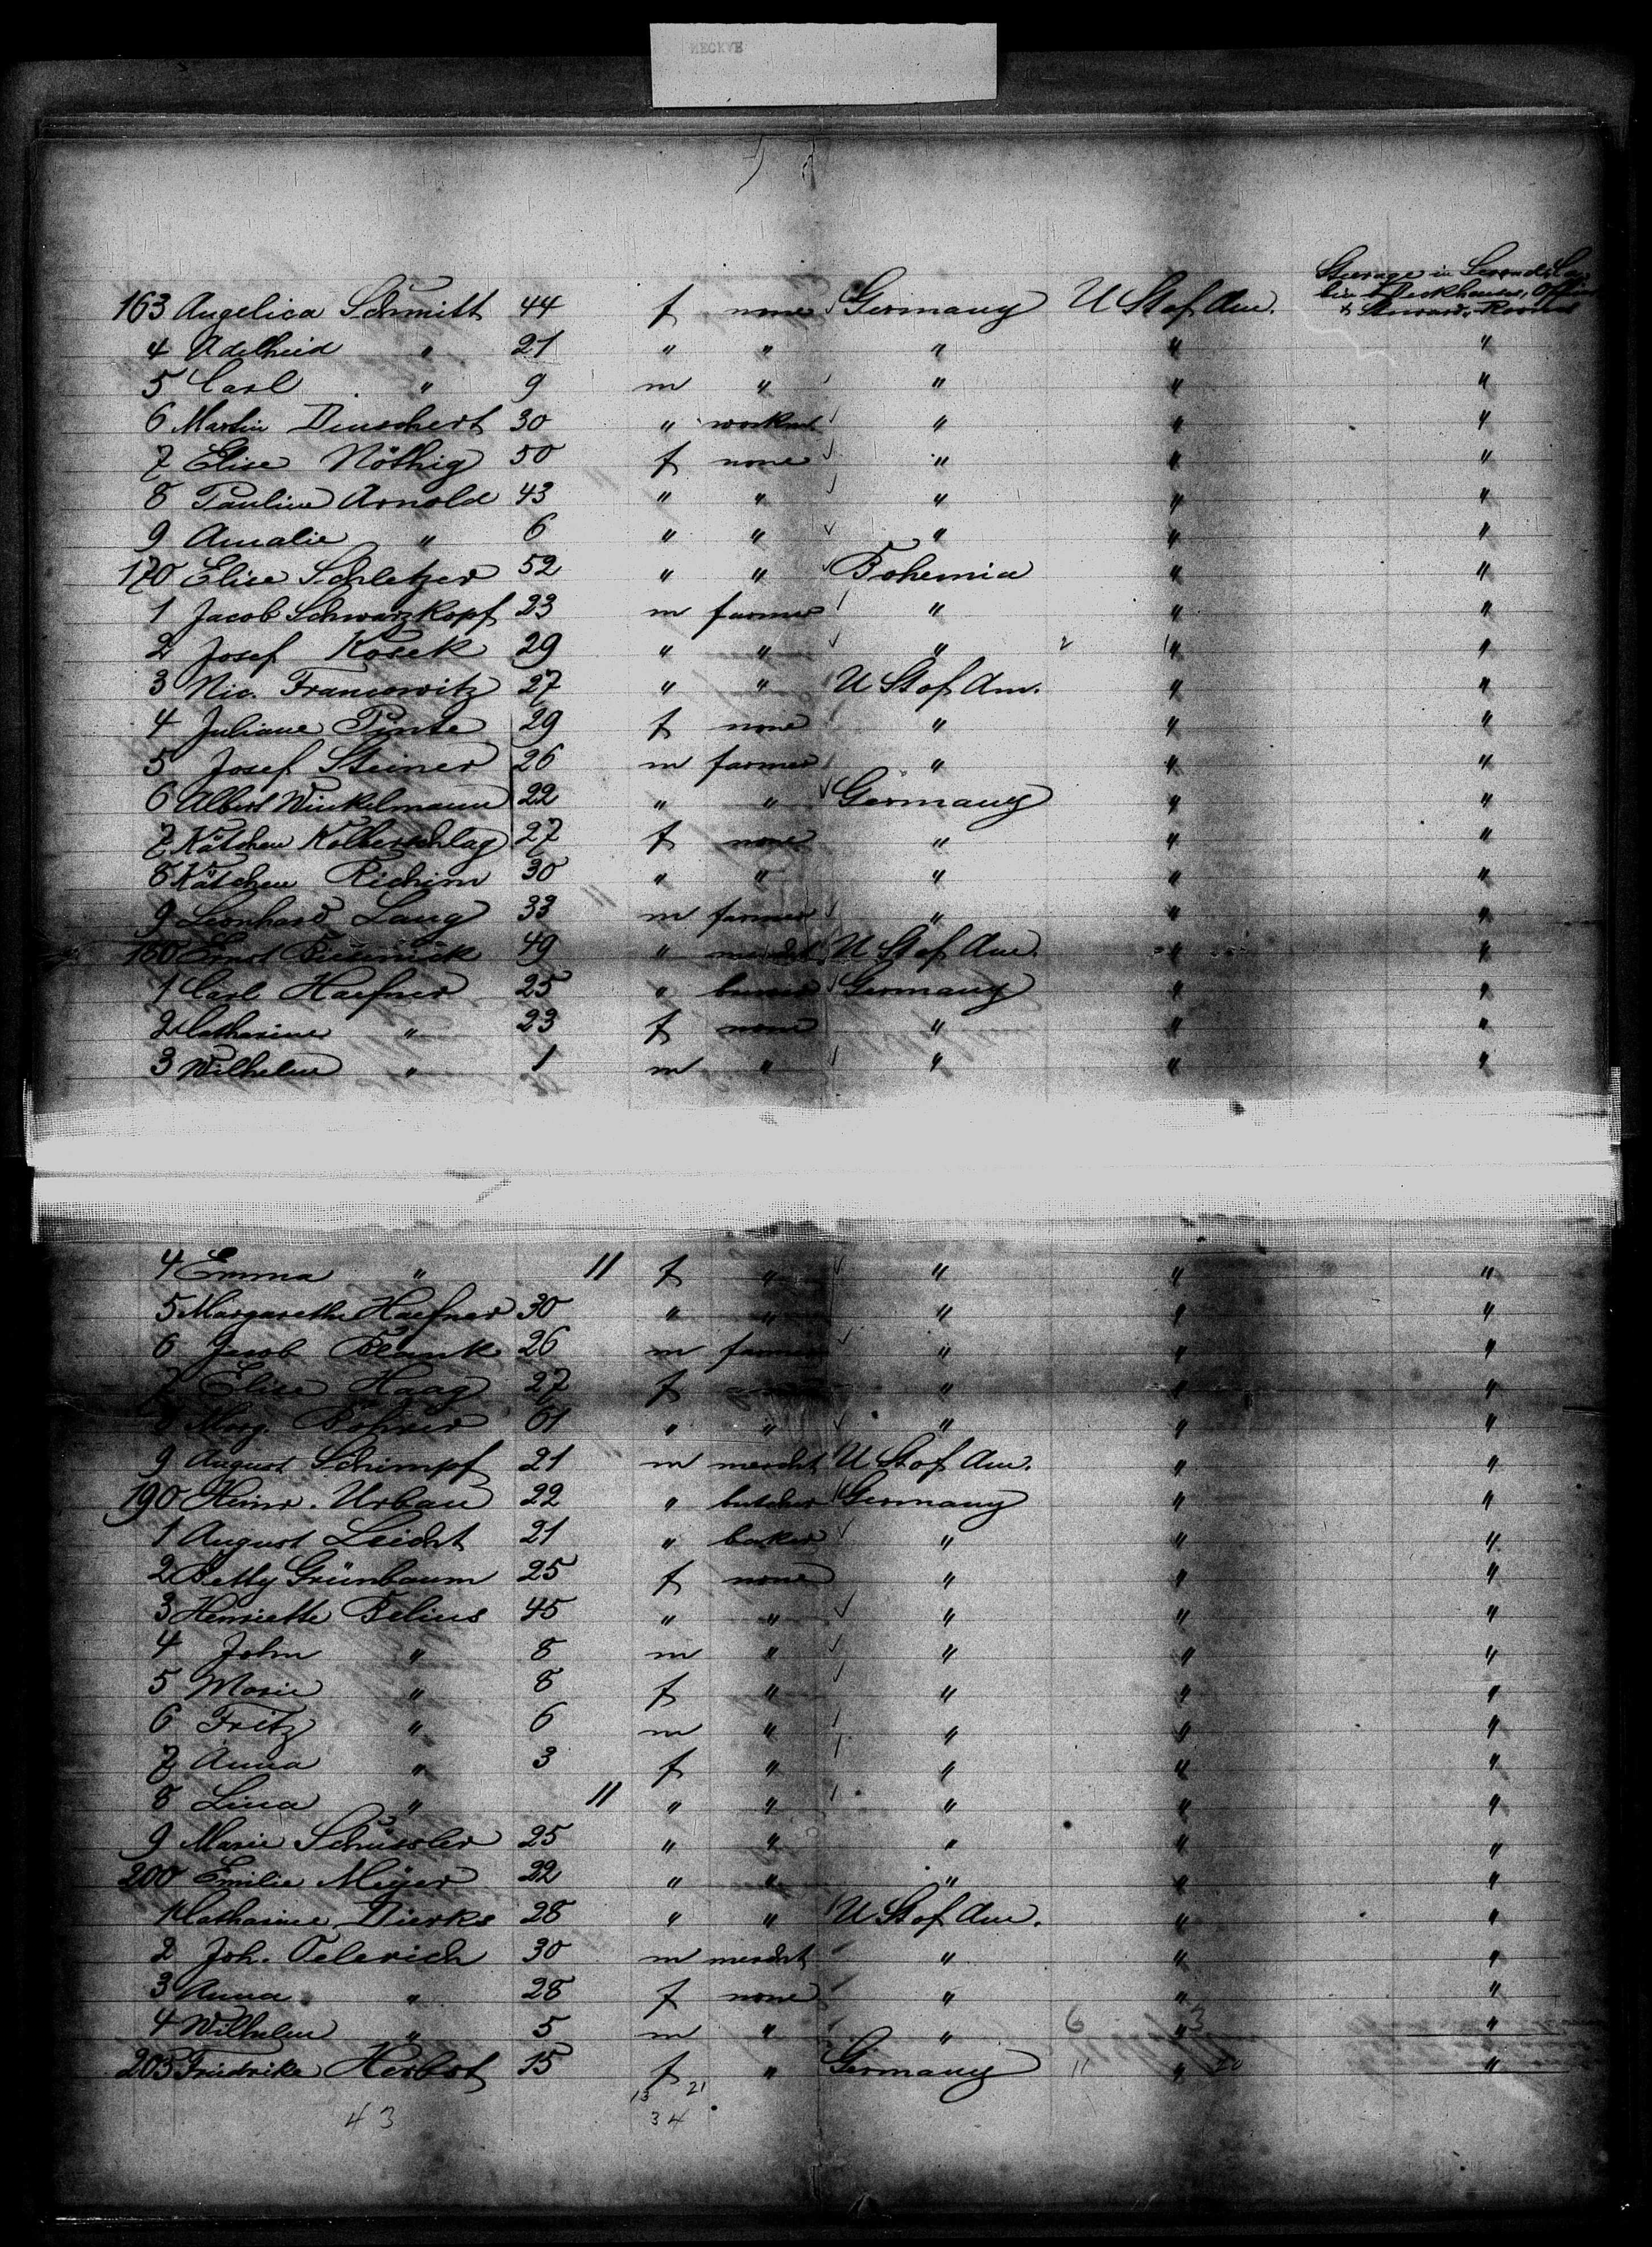 NECKVE
Steerage in Second Ca-
bin & Deckhouses, Officers
163 Angelica Schmitt 44 f none Germany U St of Am. & Stewards, Rooms
4 Adelheid " 21 " " " " "
5 Carl " 9 m " " " "
6 Martin Deuschert 30 " workm " " "
7 Elise Nöthig 50 f none " " "
8 Pauline Arnold 43 " " " " "
9 Amalie " 6 " " " " "
170 Elise Schletzer 52 " " Bohemia " "
1 Jacob Schwarzkopf 23 m farmer " " "
2 Josef Kosek 29 " " " " "
3 Nic. Francowitz 27 " " U St of Am. " "
4 Juliane Pinte 29 f none " " "
5 Josef Steiner 26 m farmer " " "
6 Albert Winkelmann 22 " " Germany " "
7 Kätchen Kolberschlag 27 f none " " "
8 Kätchen Richim 30 " " " " "
9 Leonhard Lang 33 m farmer " " "
180 Ernst 49 " mercht U St of Am. " "
1 Carl Haefner 25 " Germany " "
2 Catharine " 23 f none " " "
3 Wilhelm " 1 m " " " "
4 Emma " 11 f " " " "
5 Margarethe Haefner 30 " " " " "
6 Jacob Blank 26 m farmer " " "
7 Elise Haag 27 f " " "
8 Marg. 61 " " " " "
9 August Schimpf 21 m mercht U St of Am. " "
190 Heinr. Urban 22 " butcher Germany " "
1 August Leicht 21 " baker " " "
2 Betty Grünbaum 25 f none " " "
3 Henriette Belius 45 " " " " "
4 John " 8 m " " " "
5 Marie " 8 f " " " "
6 Fritz " 6 m " " " "
7 Anna " 3 f " " " "
8 Lina " 11 " " " " "
9 Marie Schüssler 25 " " " " "
200 Emilie Meyer 22 " " " " "
1 Catharine Dierks 28 " " U St of Am. " "
2 Joh. Oelerich 30 m mercht " " "
3 Anna " 28 f none " " "
4 Wilhelm " 5 m " " 6 " 3 "
205 Friedrike Herbst 15 f " Germany 11 " 20 "
13 21
43 34